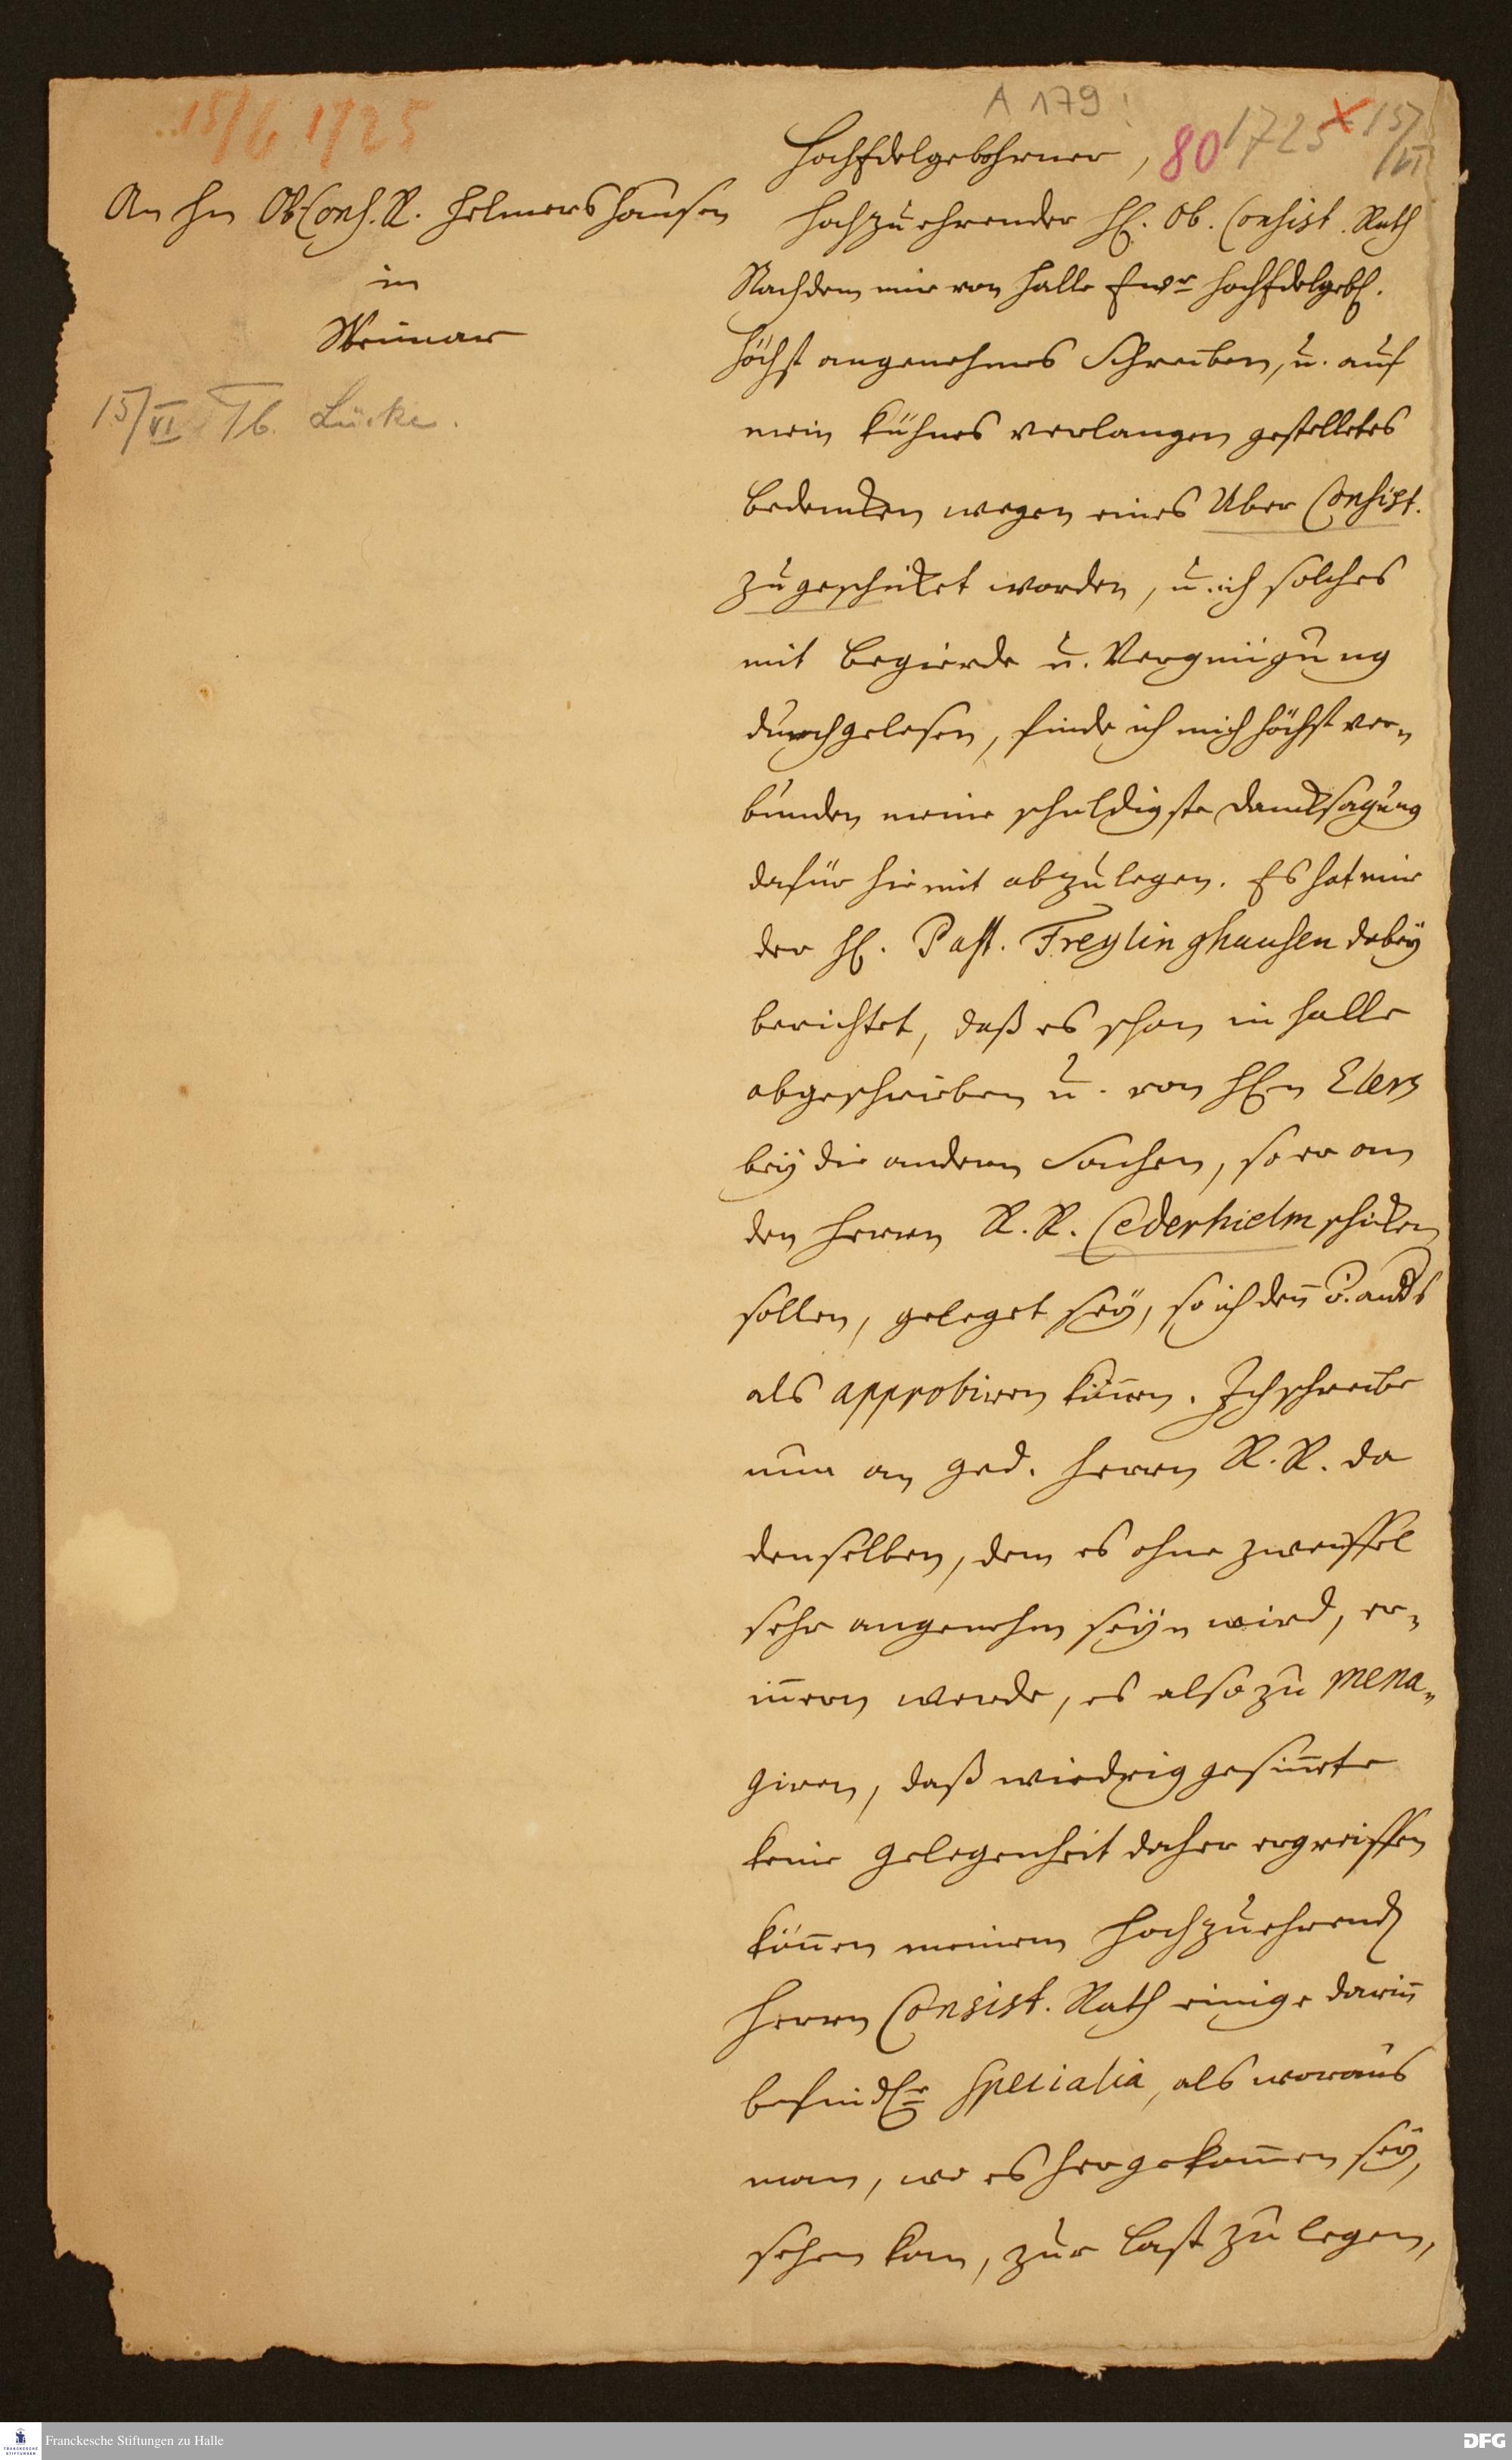 15/6 1725
A 179!
80 1725 x 15/VI
An Hn ObCons. R. Helmershausen
in
Weimar
15/VI Tb. Lücke.
HochEdelgebohrner,
Hochzuehrender H. Ob. Consist. Rath
Nachdem mir von Halle Ewr HochEdelgeb.
höchst angenehmes Schreiben, u. auf
mein kühnes verlangen gestelletes
Bedencken wegen eines Uber Consist.
zugeschicket worden, u. ich solches
mit Begierde u. Vergnügung
durchgelesen, finde ich mich höchst ver-
bunden meine schuldigste Dancksagung
dafür hiemit abzulegen. Es hat mir
der H. Past. Freylinghausen dabey
berichtet, daß es schon in Halle
abgeschrieben u. von HEn Elers
bey die andern Sachen, so er an
den Herrn R. R. Cederhielm schicken
sollen, geleget sey, so ich denn anders
als approbiren können. Ich schreibe
nun an ged. Herrn R. R. da
denselben, dem es ohne zweiffel
sehr angenehm seyn wird, er-
innern werde, es also zu mena-
giren, daß wiedrig gesinnete
keine Gelegenheit daher ergreiffen
können meinem Hochzuehrend
Herrn Consist. Rath einige darinn
befindl. specialia, als woraus
man, wo es hergekommen sey,
sehen kan, zur Last zu legen,
Franckesche Stiftungen zu Halle
DFG